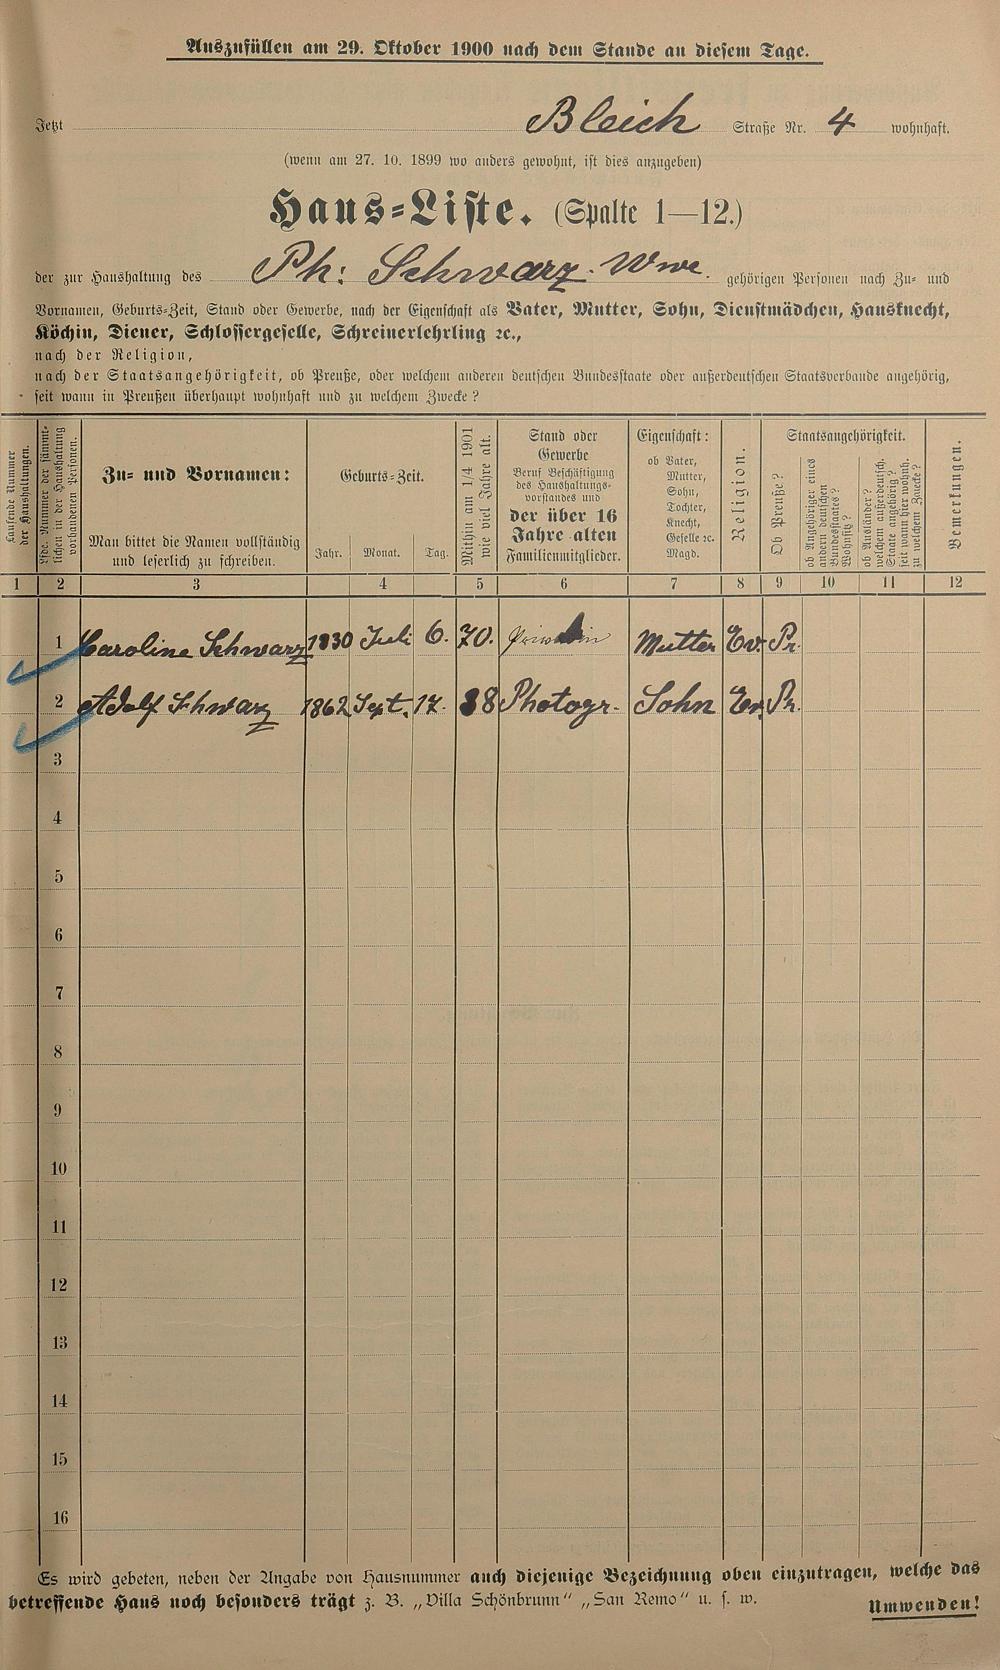 Auszufüllen am 29. Oktober 1900 nach dem Stande an diesem Tage.
Jetzt Bleich Straße Nr. 4 wohnhaft.
(wenn am 27. 10. 1899 wo anders gewohnt, ist dies anzugeben)
Haus-Liste. (Spalte 1—12.)
der zur Haushaltung des Ph: Schwarz. Wwe. gehörigen Personen nach Zu- und
Vornamen, Geburts-Zeit, Stand oder Gewerbe, nach der Eigenschaft als Vater, Mutter, Sohn, Dienstmädchen, Hausknecht,
Köchin, Diener, Schlossergeselle, Schreinerlehrling ꝛc.,
nach der Religion,
nach der Staatsangehörigkeit, ob Preuße, oder welchem anderen deutschen Bundesstaate oder außerdeutschen Staatsverbande angehörig,
seit wann in Preußen überhaupt wohnhaft und zu welchem Zwecke?
Laufende Nummer
der Haushaltungen.
Lfde. Nummer der sämmt-
lichen in der Haushaltung
vorhandenen Personen.
Zu- und Vornamen:
Man bittet die Namen vollständig
und leserlich zu schreiben.
Geburts-Zeit.
Jahr. Monat. Tag.
Mithin am 1/4 1901
wie viel Jahre alt.
Stand oder
Gewerbe
Beruf Beschäftigung
des Haushaltungs-
vorstandes und
der über 16
Jahre alten
Familienmitglieder.
Eigenschaft:
ob Vater,
Mutter,
Sohn,
Tochter,
Knecht,
Geselle ꝛc.
Magd.
Religion.
Staatsangehörigkeit.
Ob Preuße?
ob Angehöriger eines
andern deutschen
Bundesstaates?
Wohnsitz?
ob Ausländer?
welchem außerdeutsch.
Staate angehörig?
seit wann hier wohnh.
zu welchem Zwecke?
Bemerkungen.
1 2 3 4 5 6 7 8 9 10 11 12
1 Caroline Schwarz 1830 Juli 6. 70. Mutter Ev. Pr.
2 Adolf Schwarz 1862 Sept. 17. 38 Photogr. Sohn Ev. Pr.
3
4
5
6
7
8
9
10
11
12
13
14
15
16
Es wird gebeten, neben der Angabe von Hausnummer auch diejenige Bezeichnung oben einzutragen, welche das
betreffende Haus noch besonders trägt z. B. „Villa Schönbrunn“ „San Remo“ u. s. w.
Umwenden!